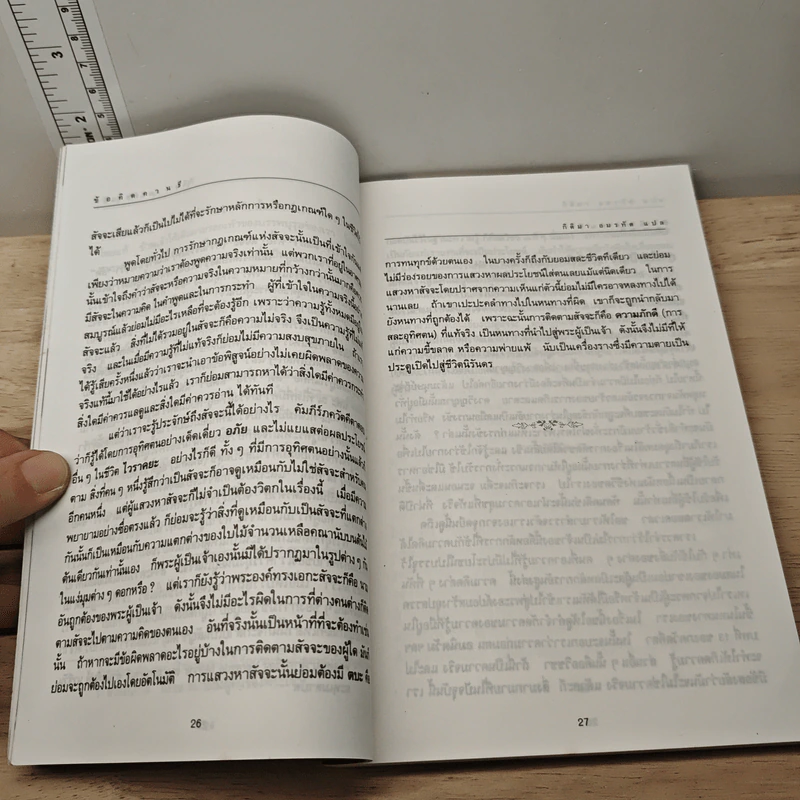 ข้อคิดคานธี
สัจจะเสียแล้วก็เป็นไปไม่ได้ที่จะรักษาหลักการหรือกฎเกณฑ์ใด ๆ ในชีวิต
ได้
พูดโดยทั่วไป การรักษากฎเกณฑ์แห่งสัจจะนั้นเป็นที่เข้าใจกัน
เพียงว่าหมายความว่าเราต้องพูดความจริงเท่านั้น แต่พวกเราที่อยู่ใน
นั้นเข้าใจถึงคำว่าสัจจะหรือความจริงในความหมายที่กว้างกว่านั้นมาก
มีสัจจะในความคิด ในคำพูดและในการกระทำ ผู้ที่เข้าใจในความจริงนี้
สมบูรณ์แล้วย่อมไม่มีอะไรเหลือที่จะต้องรู้อีก เพราะว่าความรู้ทั้งหมด
สัจจะแล้ว สิ่งที่ไม่ได้รวมอยู่ในสัจจะก็คือความไม่จริง จึงเป็นความรู้ที่ไม่
จริง และในเมื่อมีความรู้ที่ไม่แท้จริงก็ย่อมไม่มีความสงบสุขภายใน ถ้า
ได้รู้เสียครั้งหนึ่งแล้วว่าเราจะนำเอาข้อพิสูจน์อย่างไม่เคยผิดพลาดของความ
จริงแท้นี้มาใช้ได้อย่างไรแล้ว เราก็ย่อมสามารถหาได้ว่าสิ่งใดมีค่าควรกระทำ
สิ่งใดมีค่าควรแลดูและสิ่งใดมีค่าควรอ่าน ได้ทันที
แต่ว่าเราจะรู้ประจักษ์ถึงสัจจะนี้ได้อย่างไร คัมภีร์ภควัตคีตา
ว่าก็รู้ได้โดยการอุทิศตนอย่างเด็ดเดี่ยว อภัย และไม่แยแสต่อผลประโยชน์
อื่น ๆ ในชีวิต ไวราคยะ อย่างไรก็ดี ทั้ง ๆ ที่มีการอุทิศตนอย่างนั้นแล้วก็
ตาม สิ่งที่คน ๆ หนึ่งรู้สึกว่าเป็นสัจจะก็อาจดูเหมือนกับไม่ใช่สัจจะสำหรับ
อีกคนหนึ่ง แต่ผู้แสวงหาสัจจะก็ไม่จำเป็นต้องวิตกในเรื่องนี้ เมื่อมีความ
พยายามอย่างซื่อตรงแล้ว ก็ย่อมจะรู้ว่าสิ่งที่ดูเหมือนกับเป็นสัจจะที่แตกต่าง
กันนั้นก็เป็นเหมือนกับความแตกต่างของใบไม้จำนวนเหลือคณานับบนต้นไม้
ต้นเดียวกันเท่านั้นเอง ก็พระผู้เป็นเจ้าเองนั้นมิได้ปรากฏมาในรูปต่าง ๆ กัน
ในแง่มุมต่าง ๆ ดอกหรือ? แต่เราก็ยังรู้ว่าพระองค์ทรงเอกะสัจจะก็คือ นาม
อันถูกต้องของพระผู้เป็นเจ้า ดังนั้นจึงไม่มีอะไรผิดในการที่ต่างคนต่างก็ติด
ตามสัจจะไปตามความคิดของตนเอง อันที่จริงนั้นเป็นหน้าที่ที่จะต้องทำเช่น
นั้น ถ้าหากจะมีข้อผิดพลาดอะไรอยู่บ้างในการติดตามสัจจะของผู้ใด มันก็
ย่อมจะถูกต้องไปเองโดยอัตโนมัติ การแสวงหาสัจจะนั้นย่อมต้องมี ตบะ คือ
26
กิติมา อมรทัต แปล
การทนทุกข์ด้วยตนเอง ในบางครั้งก็ถึงกับยอมสละชีวิตทีเดียว และย่อม
ไม่มีร่องรอยของการแสวงหาผลประโยชน์ใส่ตนเลยแม้แต่นิดเดียว ในการ
แสวงหาสัจจะโดยปราศจากความเห็นแก่ตัวนี้ย่อมไม่มีใครอาจหลงทางไปได้
นานเลย ถ้าเขาเปะปะคลำทางไปในหนทางที่ผิด เขาก็จะถูกนำกลับมา
ยังหนทางที่ถูกต้องได้ เพราะฉะนั้นการติดตามสัจจะก็คือ ความภักดี (การ
สละอุทิศตน) ที่แท้จริง เป็นหนทางที่นำไปสู่พระผู้เป็นเจ้า ดังนั้นจึงไม่มีที่ให้
แก่ความขี้ขลาด หรือความพ่ายแพ้ นับเป็นเครื่องรางซึ่งมีความตายเป็น
ประตูเปิดไปสู่ชีวิตนิรันดร
27